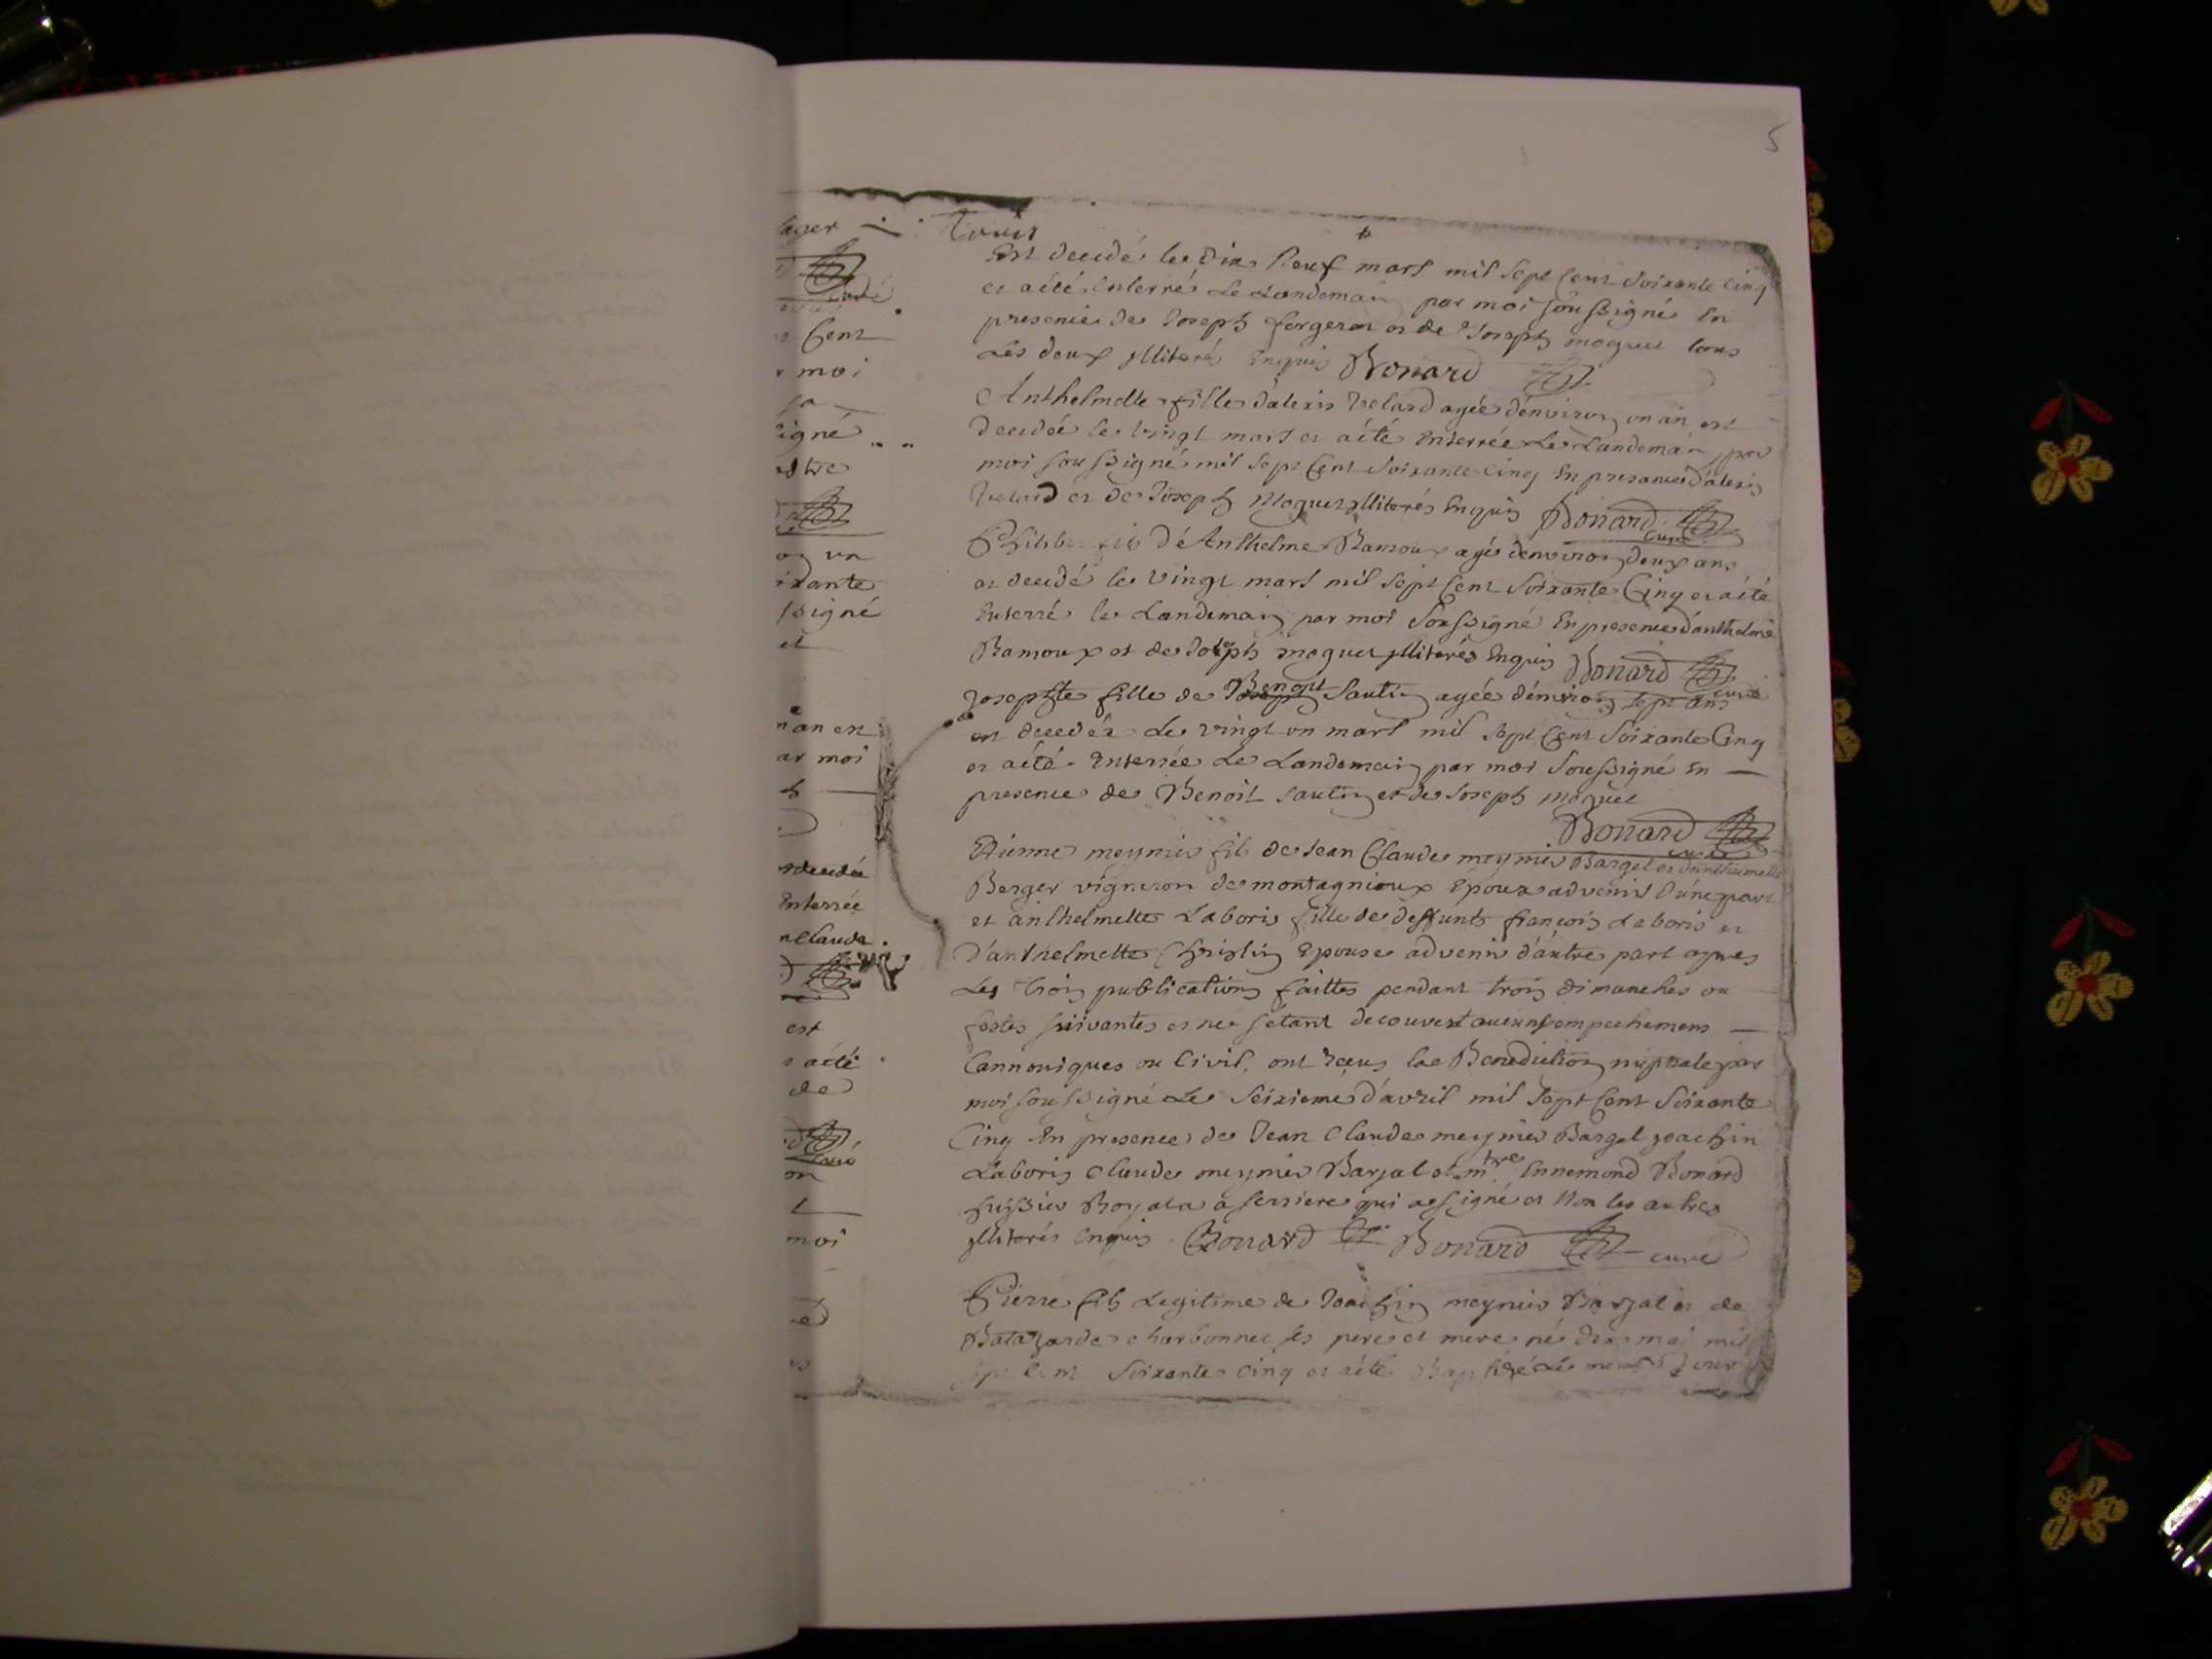 5
Est decedé le Dix Neuf mars mil sept Cent Soixante Cinq
et aété Enterré Le Landemain par moi soussigné En
presence de Joseph forgeron et de Joseph moguet tous
Les deux jlliterés Enquis Bonard
Anthelmette fille d'alexis Velard agée d'environ un an est
decedée le vingt mars et aété Enterrée Le Landemain par
moi soussigné mil sept Cent Soixante Cinq En presance d'alexis
Velard et de Joseph Moguet jlliterés Enquis Bonard curé
fils d'Anthelme Ramoux agé d'environ deux ans
et decedé le vingt mars mil sept Cent Soixante Cinq et aété
Enterré le Landemain par moi Soussigné En presence d'anthelme
Ramoux et de Joseph moguet jlliterés Enquis Bonard curé
Josephte fille de Benoit Sautin agée d'environ sept ans
est decedée Le vingt un mars mil sept Cent Soixante Cinq
et aété Enterrée Le Landemain par moi Soussigné En
presence de Benoit Sautin et de Joseph moguet
Bonard curé
Etienne meynier fils de Jean Claude meynier Bargel et
Berger vigneron de montagnieux Epoux advenir d'une part
et anthelmette Laboris fille de deffunts françois Laboris et
D'anthelmette Christin Epouse advenir d'autre part apres
Les trois publications faittes pendant trois dimanches ou
festes suivantes et ne setant decouvert aucuns empechemens
Cannoniques ou Civil, ont reçus la Benediction nuptiale par
moi soussigné Le Seizieme d'avril mil Sept Cent Soixante
Cinq En presence de Jean Claude meynier Bargel joachin
Laboris Claude meynier Barjal et mtre Ennemond Bonard
huissier Royala a serriere qui a signé et Non les autres
jlliterés Enquis Bonard Bonard curé
Pierre fils Legitime de Joachin meynier Barjal et de
Batazarde charbonnet ses pere et mere né dix mai mil
sept Cent Soixante Cinq et aété Baptisé Le meme jour